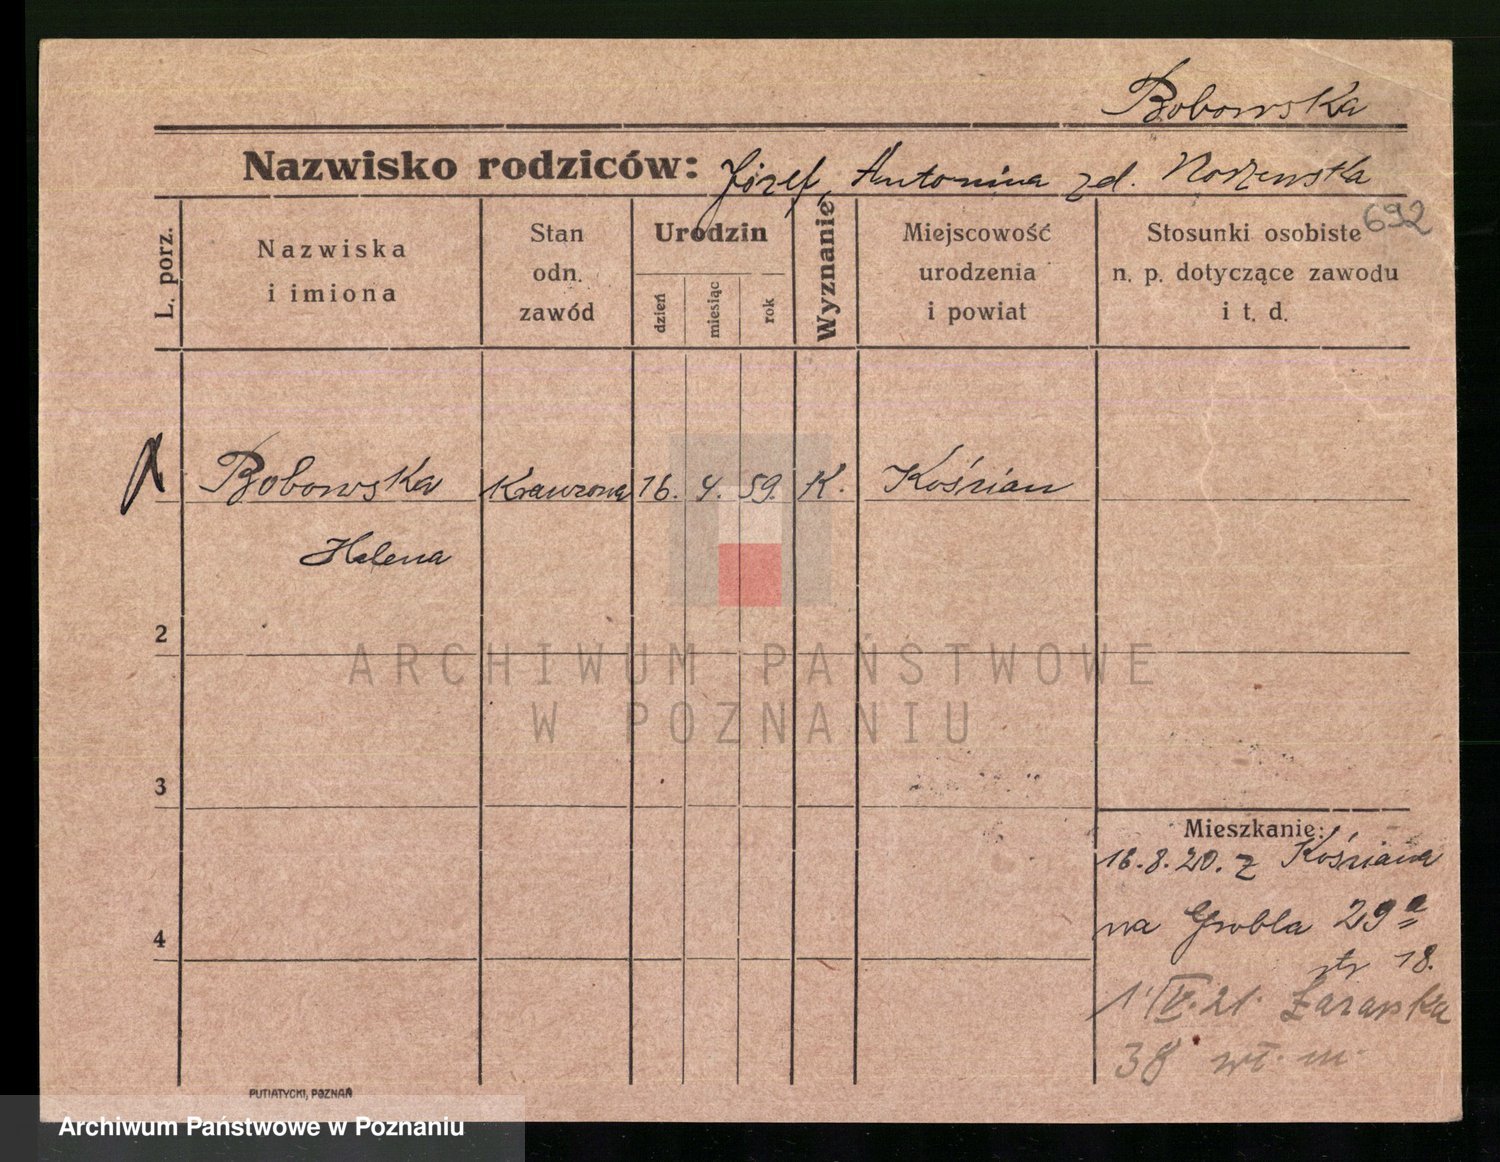 Bobowska
Nazwisko rodziców: Józef, Antonina zd.
692
L. porz.
Nazwiska
i imiona
Stan
odn.
zawód
Urodzin
dzień
miesiąc
rok
Wyznanie
Miejscowość
urodzenia
i powiat
Stosunki osobiste
n. p. dotyczące zawodu
i t. d.
Bobowska Krawcowa 16. 4. 59. K. Kościan
Helena
2
ARCHIWUM PAŃSTWOWE
W POZNANIU
3
Mieszkanie:
16.8.20. z Kościana
na Grobla 29a
18.
4
1 IV. 21.
38 m.
PUTIATYCKI, POZNAŃ
Archiwum Państwowe w Poznaniu